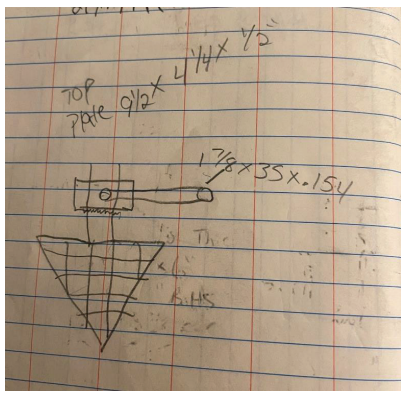 TOP
PlAte 9 1/2 x 4 1/4 x 1/2"
1 7/8 x 35 x .154